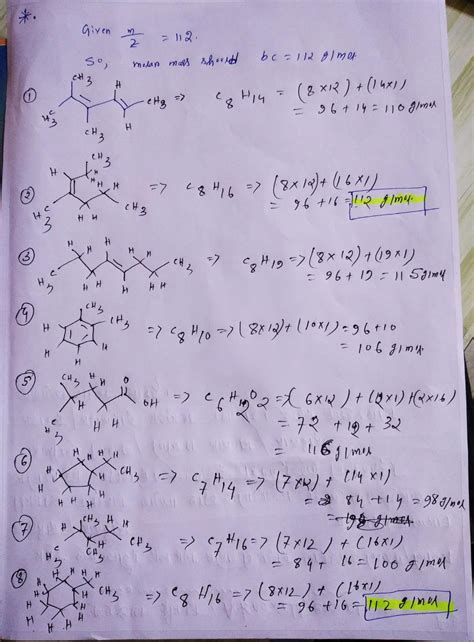 *.
Given m/z = 112.
So, mass should be = 112 g/mol
① CH3 H H3C CH3 H CH3 => C8H14 = (8x12) + (14x1)
= 96 + 14 = 110 g/mol
② CH3 H H H H3C H H CH3 => C8H16 => (8x12) + (16x1)
= 96 + 16 = 112 g/mol
③ H3C H H H H H H CH3 => C8H19 => (8x12) + (19x1)
= 96 + 19 = 115 g/mol
④ CH3 CH3 => C8H10 => (8x12) + (10x1) = 96 + 10
= 106 g/mol
⑤ CH3 H H O OH H3C => C6H12O2 => (6x12) + (12x1) + (2x16)
= 72 + 12 + 32
= 116 g/mol
⑥ CH3 H H H H => C7H14 => (7x12) + (14x1)
= 84 + 14 = 98 g/mol
⑦ CH3 CH3 H3C CH3 => C7H16 => (7x12) + (16x1)
= 84 + 16 = 100 g/mol
⑧ CH3 H H H H CH3 => C8H16 => (8x12) + (16x1)
= 96 + 16 = 112 g/mol